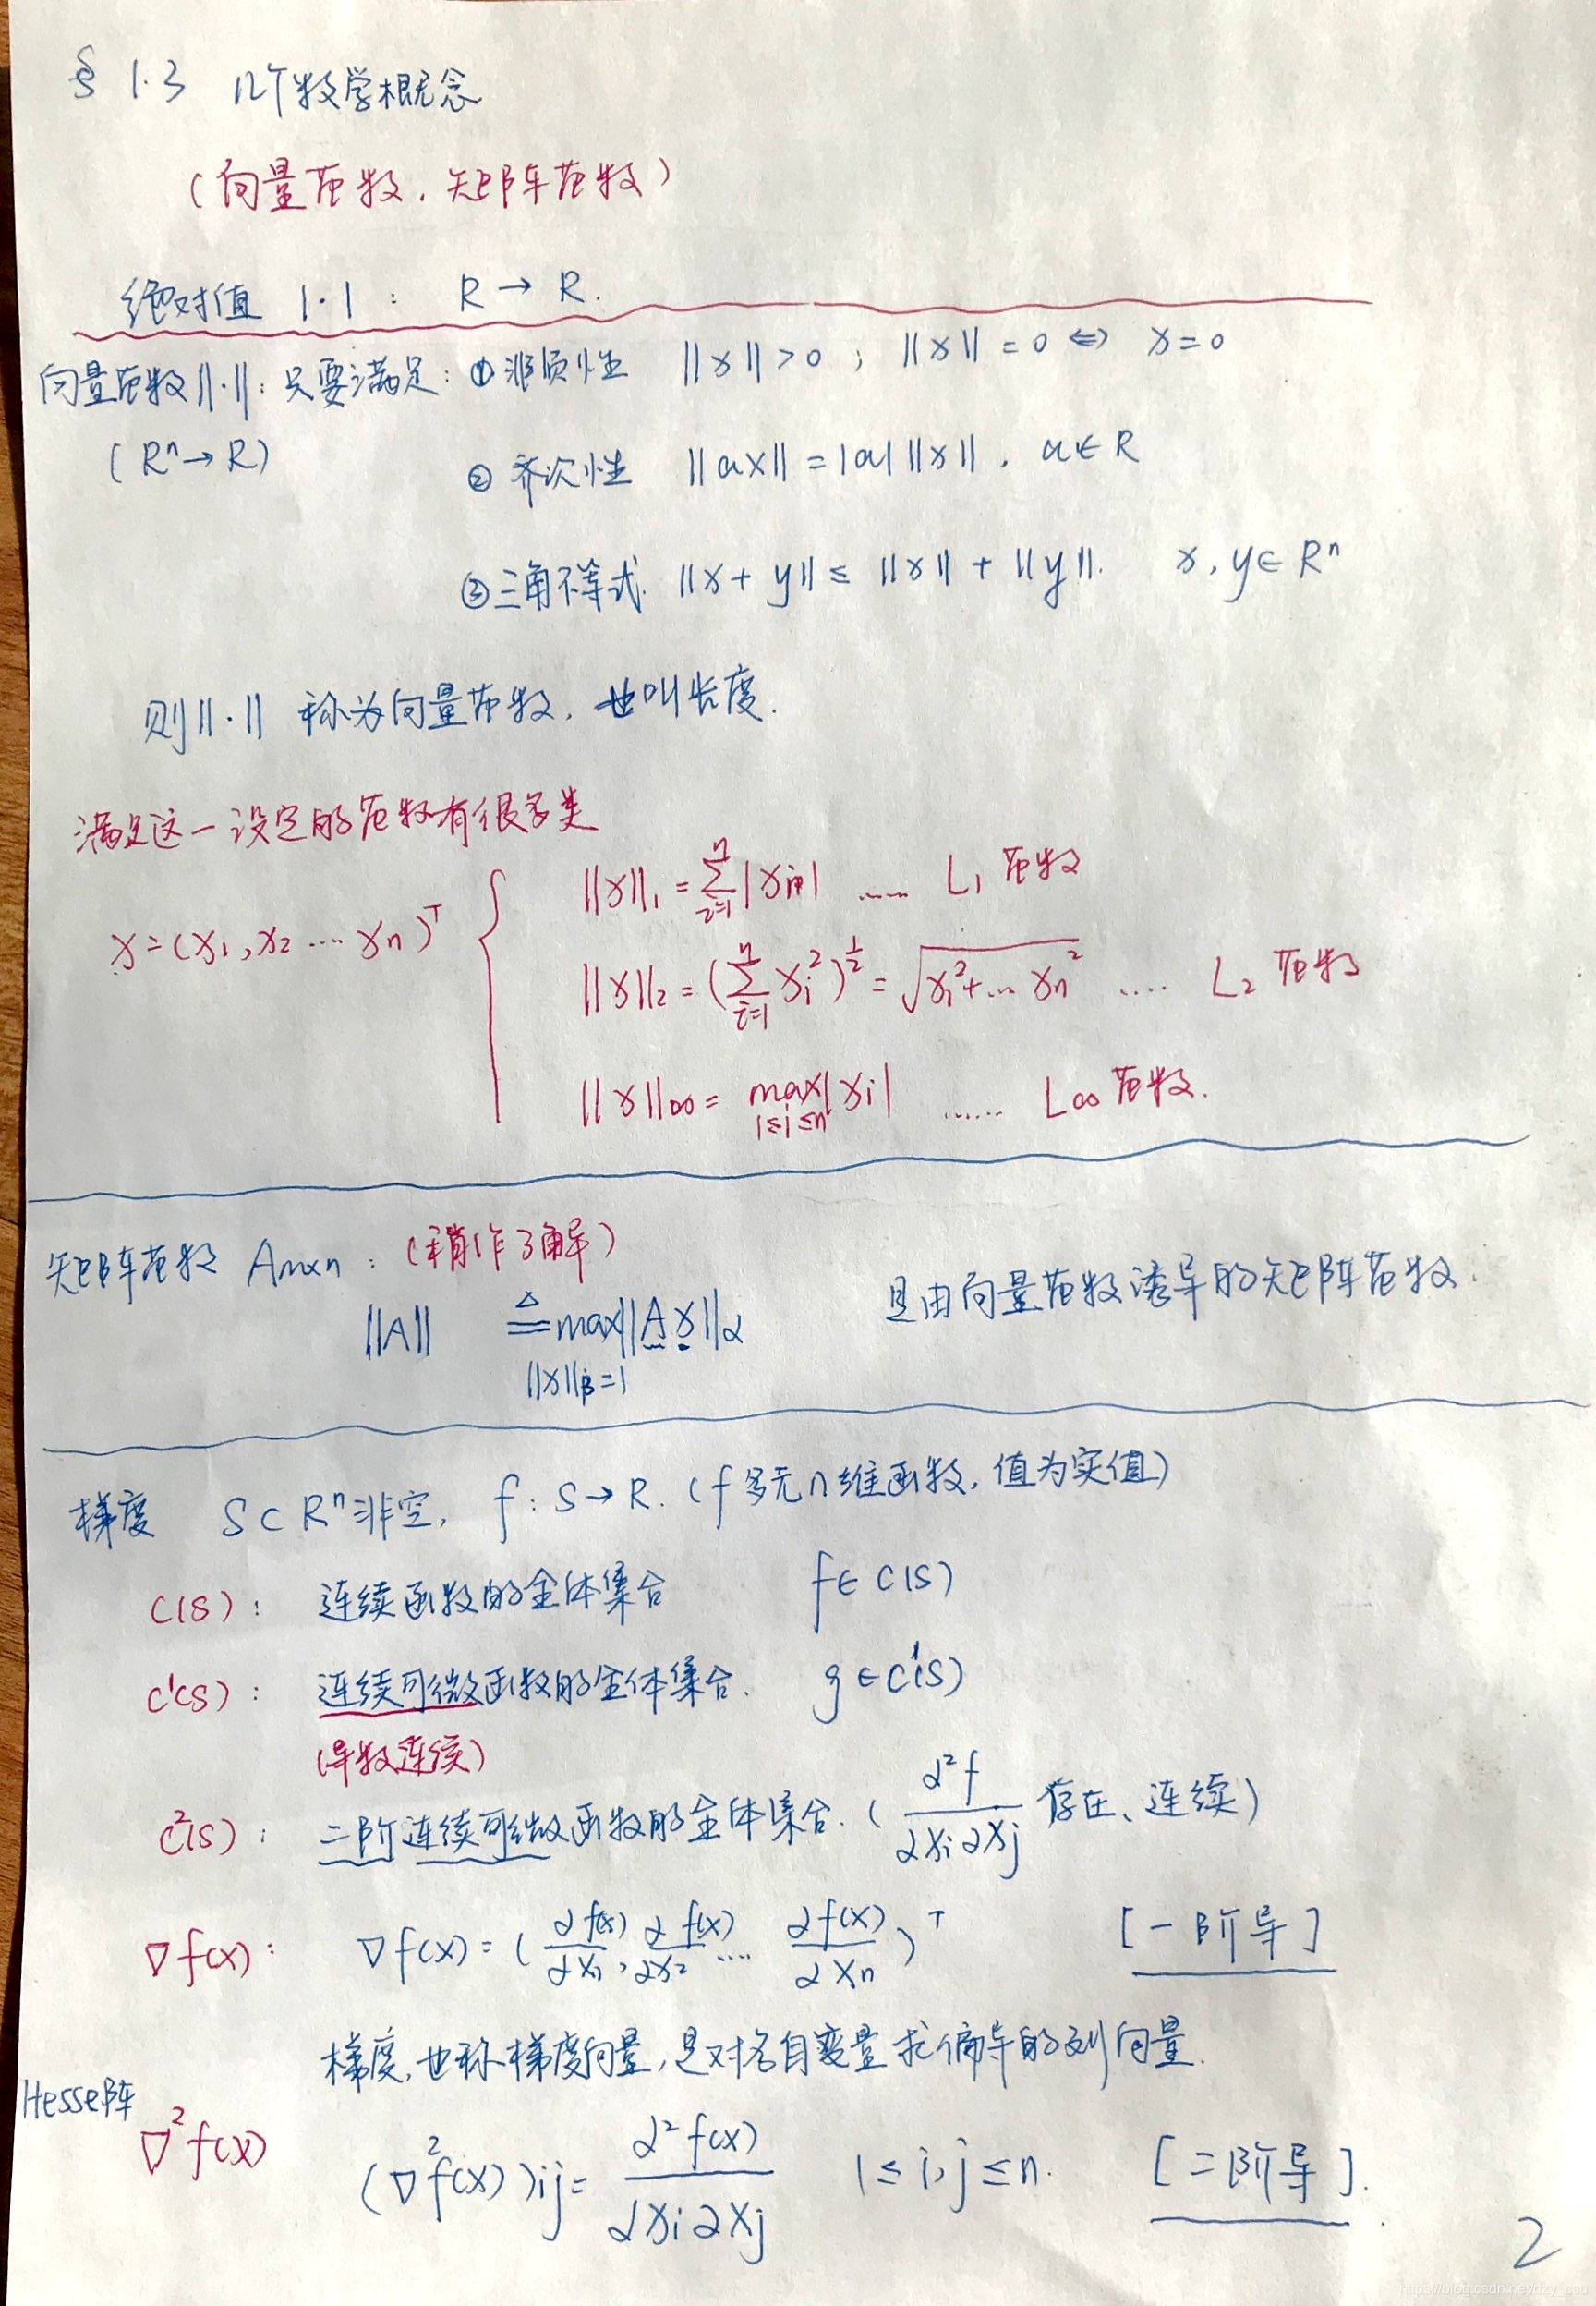 § 1.3 几个数学概念
(向量范数, 矩阵范数)
绝对值 |·| : R → R.
向量范数||·||: 只要满足: ① 非负性 ||x|| > 0 ; ||x|| = 0 ⇔ x = 0
(Rⁿ → R)
② 齐次性 ||αx|| = |α| ||x||, α ∈ R
③ 三角不等式. ||x + y|| ≤ ||x|| + ||y||. x, y ∈ Rⁿ
则||·|| 称为向量范数, 也叫长度.
满足这一设定的范数有很多类
x = (x₁, x₂ ... xₙ)ᵀ { ||x||₁ = ∑ⁿᵢ₌₁ |xᵢ| ...... L₁ 范数
||x||₂ = (∑ⁿᵢ₌₁ xᵢ²)^(1/2) = √(x₁² + ... xₙ²) .... L₂ 范数
||x||∞ = max_{1≤i≤n} |xᵢ| ...... L∞ 范数.
矩阵范数 Aₘₓₙ : (稍作了解)
||A|| ≜ max_{||x||β=1} ||Ax||α 是由向量范数诱导的矩阵范数.
梯度 S ⊂ Rⁿ 非空, f : S → R. (f 多元n维函数, 值为实值)
C(S) : 连续函数的全体集合 f ∈ C(S)
C¹(S) : 连续可微函数的全体集合. g ∈ C¹(S)
(导数连续)
C²(S) : 二阶连续可微函数的全体集合. (∂²f/∂xᵢ∂xⱼ 存在、连续)
∇f(x) : ∇f(x) = (∂f(x)/∂x₁, ∂f(x)/∂x₂ .... ∂f(x)/∂xₙ)ᵀ [一阶导]
梯度, 也称梯度向量, 是对各自变量求偏导的列向量.
Hesse阵
∇²f(x) (∇²f(x))ij = ∂²f(x)/∂xᵢ∂xⱼ 1 ≤ i, j ≤ n. [二阶导].
2
https://blog.csdn.net/dzy_csd